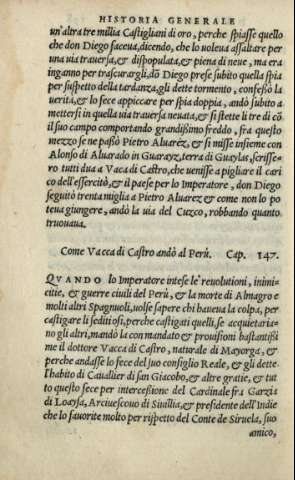 HISTORIA GENERALE
un'altra tre milia Castigliani di oro, perche spiasse quello
che don Diego faceua, dicendo, che lo voleua assaltare per
una uia trauersa, & dispopulata, & piena di neue, ma era
inganno per trascurargli, dõ Diego prese subito quella spia
per suspetto della tardanza, gli dette tormento, confessò la
uerità, & lo fece appiccare per spia doppia, andò subito a
mettersi in quella uia trauersa neuata, & si stette li tre dì cõ
il suo campo comportando grandissimo freddo, fra questo
mezzo se ne passò Pietro Aluarez, & si misse insieme con
Alonso di Aluarado in Guarayz, terra di Guaylas, scrisse-
ro tutti dua a Vaca di Castro, che uenisse a pigliare il cari
co dell'essercitò, & il paese per lo Imperatore, don Diego
seguitò trenta miglia a Pietro Aluarez & come non lo po
teua giungere, andò la uia del Cuzco, robbando quanto
truouaua.
Come Vacca di Castro andò al Perù. Cap. 147.
QVANDO lo Imperatore intese le reuolutioni, inimi-
citie, & guerre ciuili del Perù, & la morte di Almagro e
molti altri Spagnuoli, uolse sapere chi haueua la colpa, per
castigare li seditiosi, perche castigati quelli, se acquietaria-
no gli altri, mandò la con mandato & prouisioni bastantissi
me il dottore Vacca di Castro, naturale di Mayorga, &
perche andasse lo fece del suo consiglio Reale, & gli dette
l'habito di Caualiier di san Giacobo, & altre gratie, & tut
to questo fece per intercessione del Cardinale fra Garzia
di Loaysa, Arciuescouo di Siuillia, & presidente dell'Indie
che lo fauorite molto per rispetto del Conte de Siruela, suo
amico,